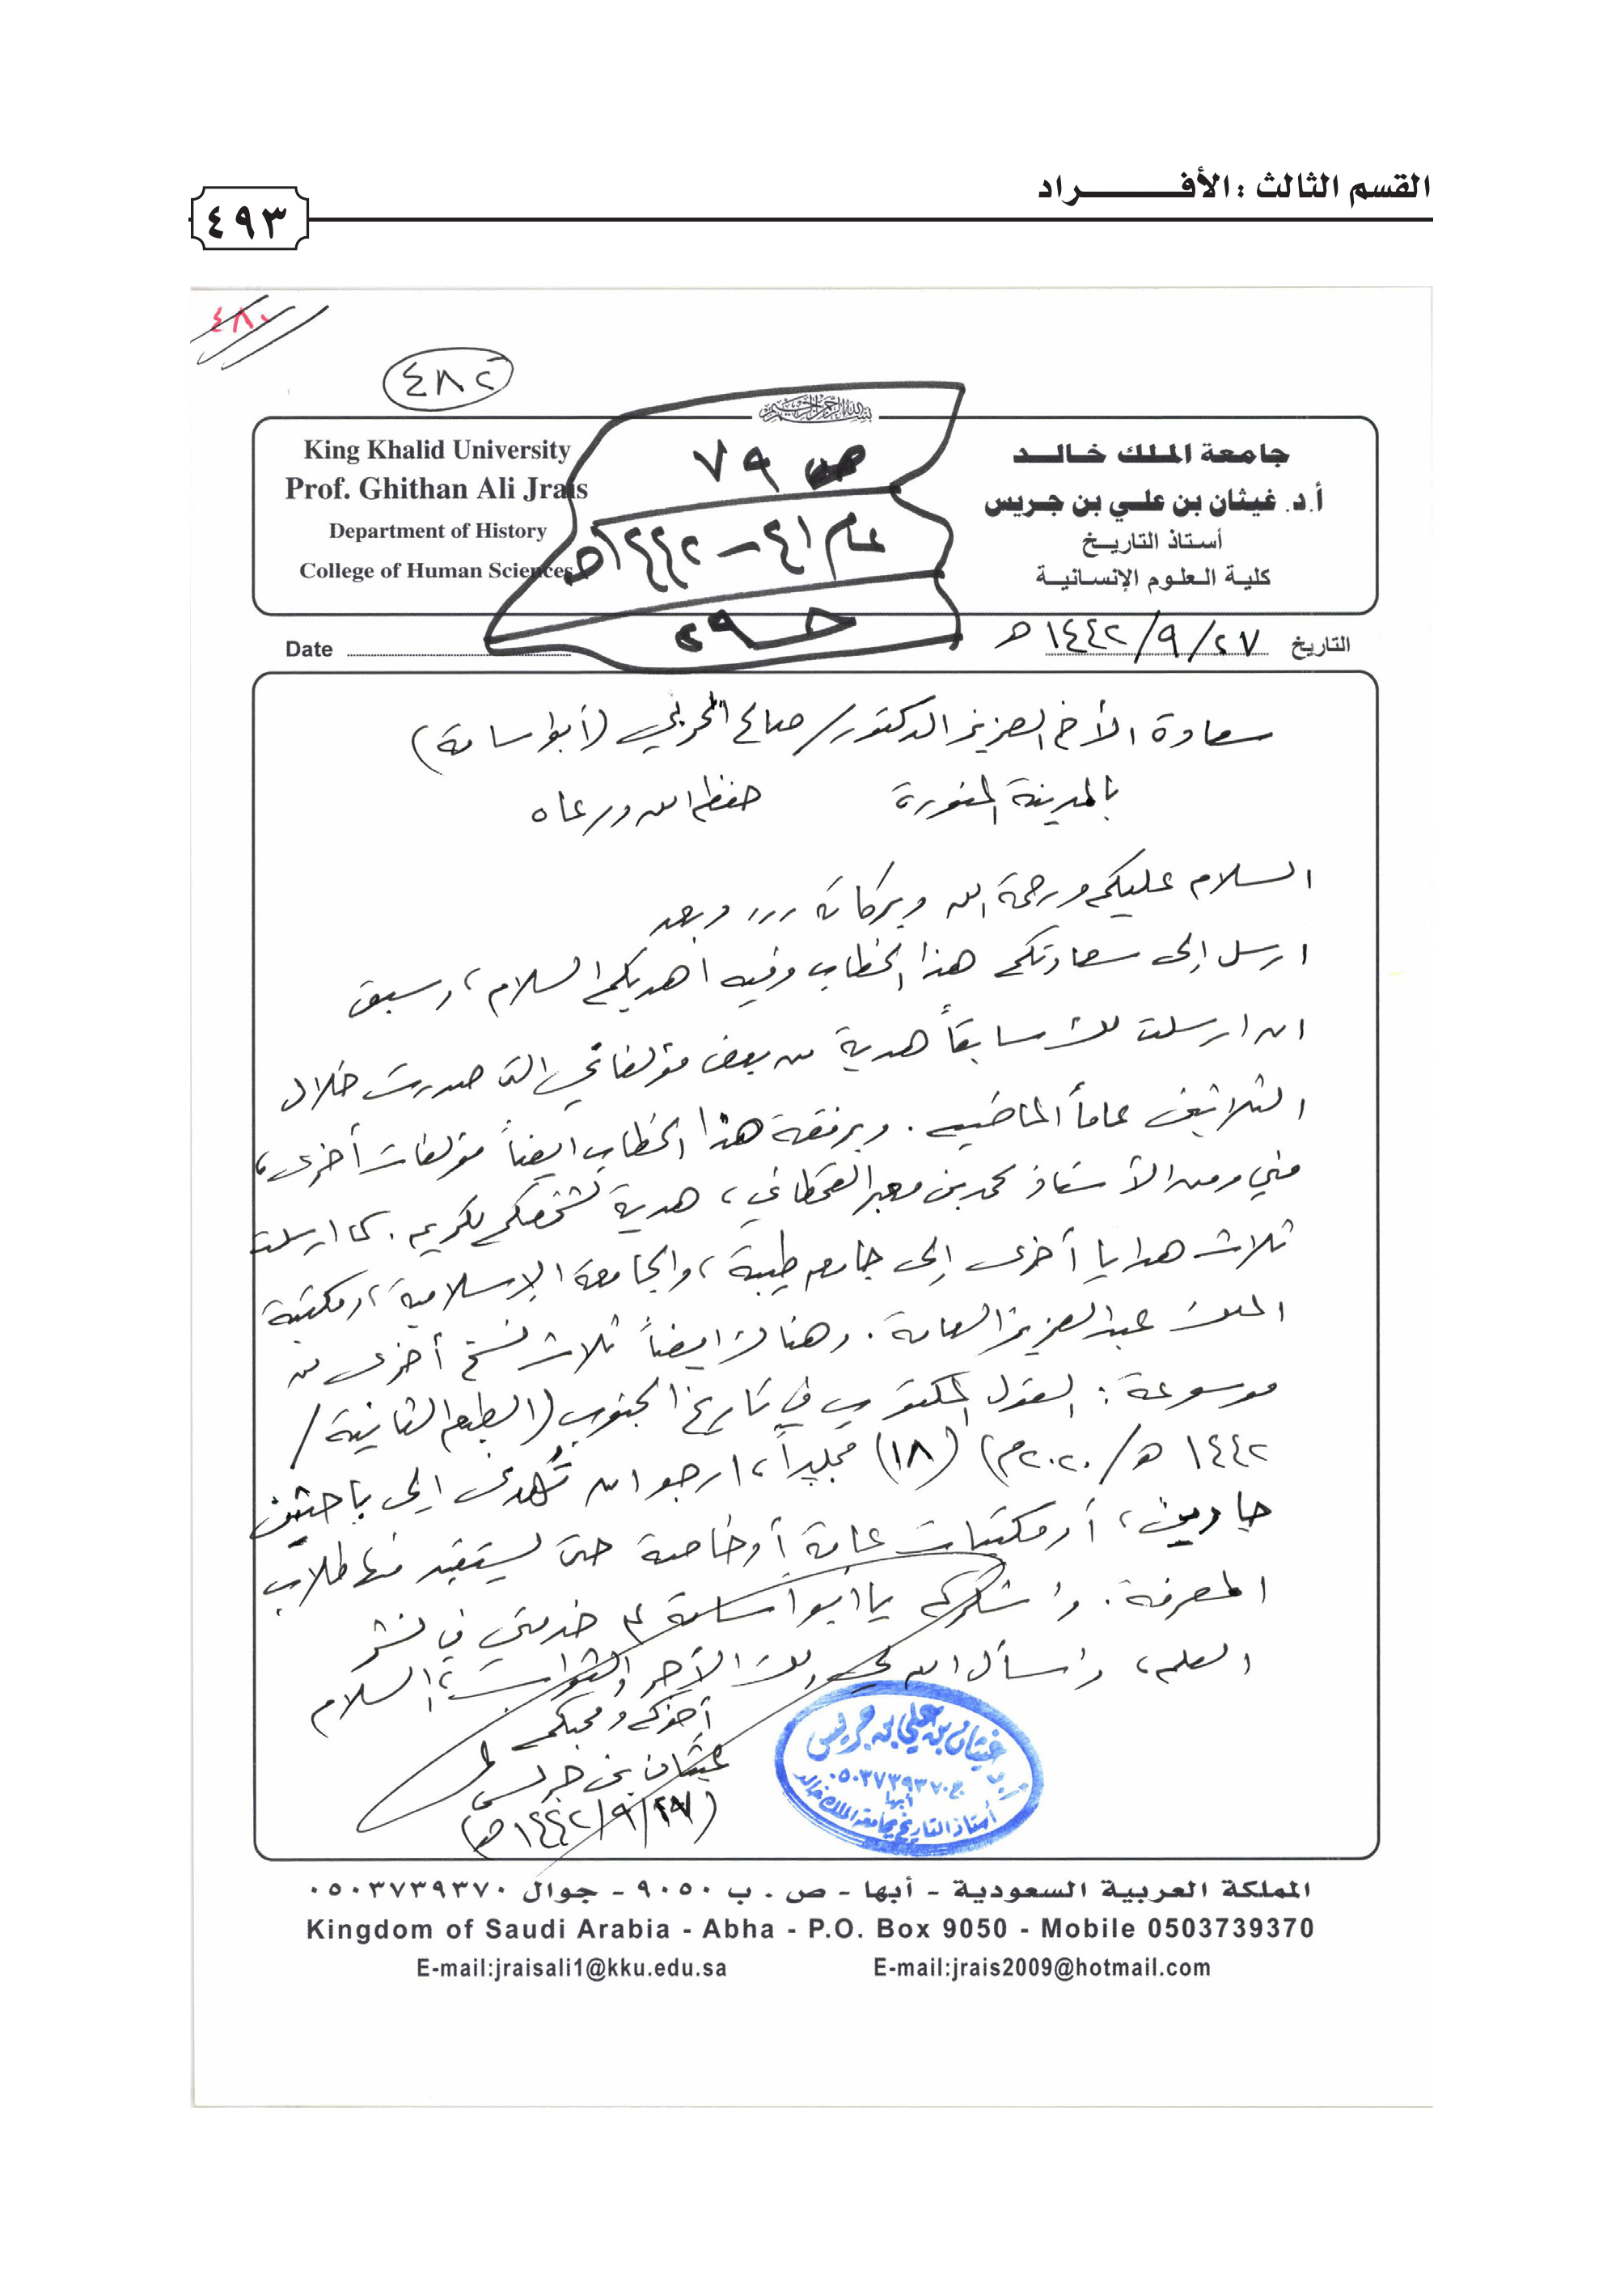 القسم الثالث : الأفـــــــراد
٤٩٣
٤٨٠
٤٨٢
بسم الله الرحمن الرحيم
King Khalid University
Prof. Ghithan Ali Jrais
Department of History
College of Human Sciences
ص ٧٩
عام ٤١ - ١٤٤٢هـ
حـ ٢٩
جامعة الملك خالد
أ.د. غيثان بن علي بن جريس
أستاذ التاريخ
كلية العلوم الإنسانية
Date
التاريخ ٢٧/٩/١٤٤٢هـ
سعادة الأخ العزيز الدكتور/ صالح الحربي (أبو اسامة)
بالمدينة المنورة حفظه الله ورعاه
السلام عليكم ورحمة الله وبركاته ... وبعد
ارسل إلى سعادتكم هذا الخطاب وفيه اهديكم السلام، وسبق
ان ارسلت لك سابقاً هدية من بعض مؤلفاتي التي صدرت خلال
الثلاثين عاماً الماضية. وبرفقة هذا الخطاب ايضاً مؤلفات أخرى،
مني ومن الأستاذ محمد بن معبر القحطاني، هدية لشخصكم الكريم. كما ارسلت
ثلاث هدايا أخرى إلى جامعة طيبة، والجامعة الإسلامية، ومكتبة
الملك عبد العزيز العامة. وهناك ايضاً ثلاث نسخ أخرى من
موسوعة: القول المكتوب في تاريخ الجنوب (الطبعة الثانية/
١٤٤٢هـ/٢٠٢٠م) (١٨) مجلداً، ارجو ان تُهدى إلى باحثين
جادين، أو مكتبات عامة أو خاصة حتى يستفيد منها طلاب
المعرفة. واشكركم يا ابو أسامة على خدمتي في نشر
العلم، واسأل الله لك الأجر والثواب، والسلام
أخوكم ومحبكم
غيثان بن جريس
(٢٧/٩/١٤٤٢هـ)
غيثان بن علي بن جريس
ج ٠٥٠٣٧٣٩٣٧٠
أبها
أستاذ التاريخ بجامعة الملك خالد
المملكة العربية السعودية - أبها - ص . ب ٩٠٥٠ - جوال ٠٥٠٣٧٣٩٣٧٠
Kingdom of Saudi Arabia - Abha - P.O. Box 9050 - Mobile 0503739370
E-mail:jraisali1@kku.edu.sa E-mail:jrais2009@hotmail.com